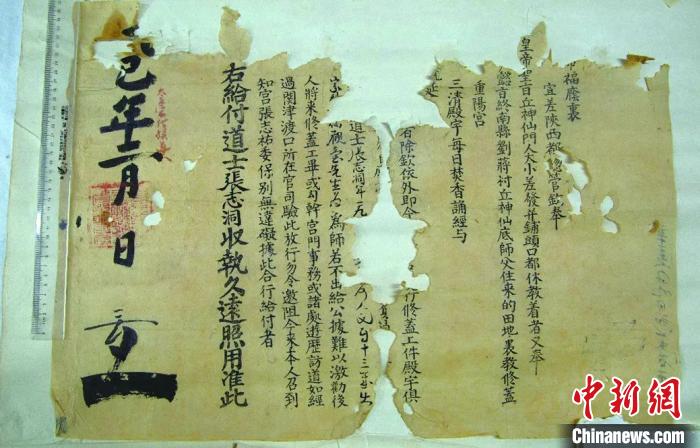 福廕裏
宣差陝西都捴管欽奉
皇帝聖旨丘神仙門人大小差發并鋪頭口都休教着者又奉
懿旨終南縣劉蔣村丘神仙底師父住來的田地裏教修蓋
重陽宫
三清殿宇每日焚香誦經与
延
除欽依外即今 行修蓋工件殿宇俱
道士張志洞年
先生為師若不出給公據難以激勸後
人將來修蓋工畢或勾幹宫門事務或諸處遊歷訪道如經
過關津渡口所在官司驗此放行勿令邀阻今來本人召到
知宫張志祐委保别無違礙據此合行給付者
右給付道士張志洞收執久遠照用准此
巳年二月 日
中新网
Chinanews.com